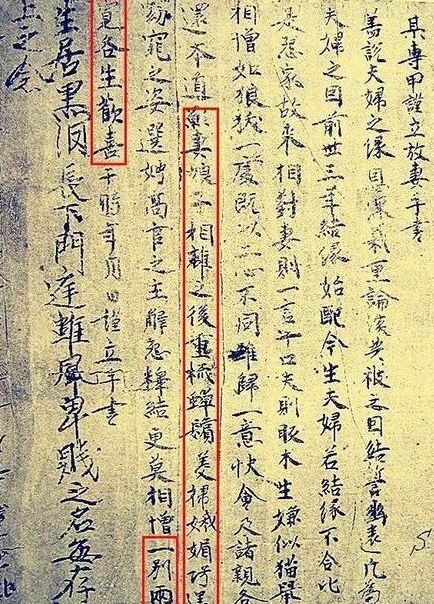 某專甲謹立放妻手書
盖說夫婦之緣恩深義重論談共被之因結誓幽遠凡為
夫婦之因前世三年結緣始配今生夫婦若結緣不合比
是怨家故來相對妻則一言十口夫則反木生嫌似猫鼠
相憎如狼一處既以二心不同難歸一意快會及諸親各
還本道願妻娘子相離之後重梳蟬鬢美掃娥媚巧逞
窈窕之姿選娉高官之主解怨釋結更莫相憎一別兩
寬各生歡喜于時年月日謹立手書
生居黑長下門庭雖卑賤之名每存
上之念